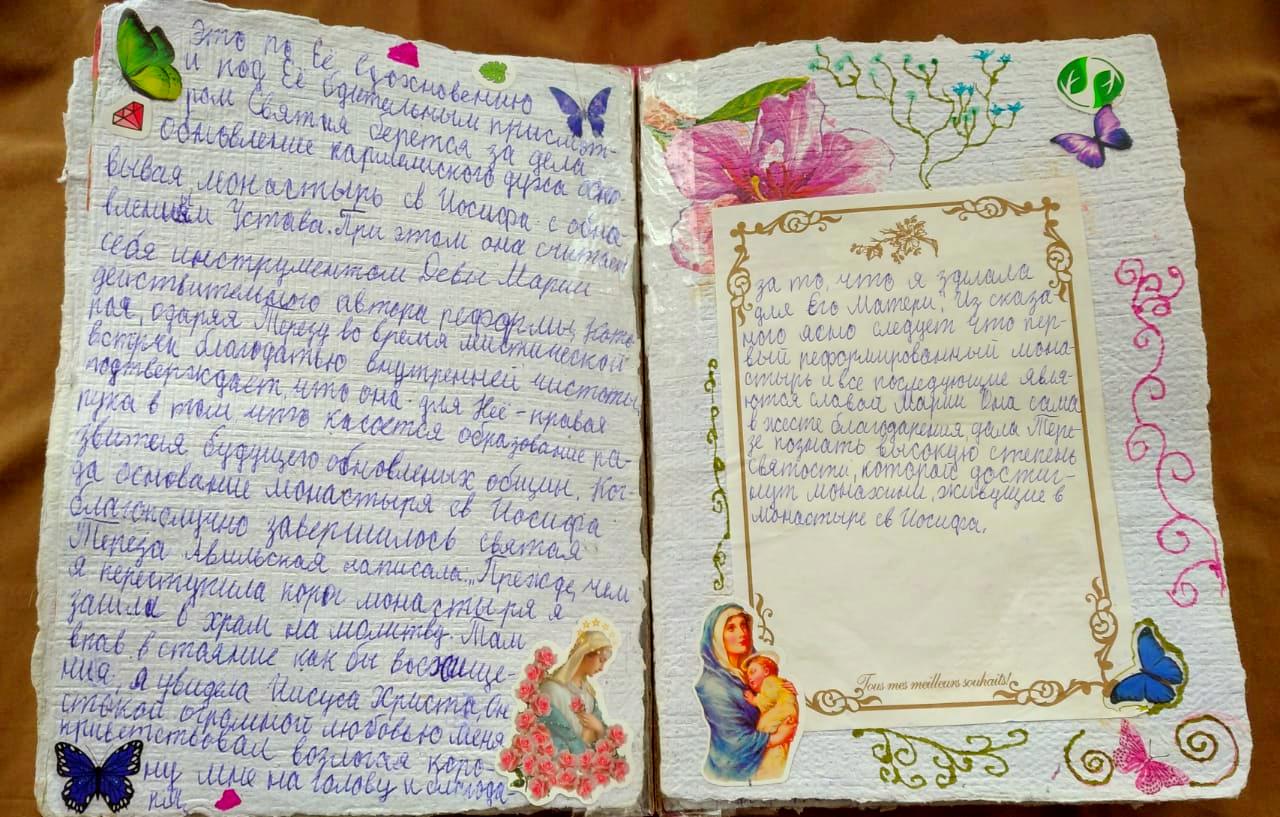 Это по Её вдохновению
и под Её бдительным присмот-
ром Святая берется за дела
обновление кармелиского духа осно
вывая, монастырь св Иосифа с обна
влением Устава. При этом она считает
себя инструментом Девы Марии
действительного автора реформы, Кото
рая, одаряя Терезу во время мистической
встречи благодатью внутренней чистоты,
подтверждает, что она для Неё - правая
рука в том что касается образование ра-
звития будущего обновленых общин. Ког-
да основание монастыря св Иосифа
благополучно завершилось святая
Тереза Авильская написала: „Прежде, чем
я переступила порог монастыря я
зашла в храм на молитву. Там
впав в стояние как бы восхище-
ния, я увидела Иисуса Христа, Он
с такой огромной любовью меня
приветствовал возлогая коро-
ну мне на голову и благода-
ря,
за то, что я зделала
для Его Матери". Из сказа-
ного ясно следует что пер-
вый реформированный мона-
стырь и все последующие явля-
ются славой Марии Она сама
в жесте благодарения дала Тере-
зе познать высокую степень
святости, которой достиг-
нут монахини, живущие в
монастыре св Иосифа.
Tous mes meilleurs souhaits!